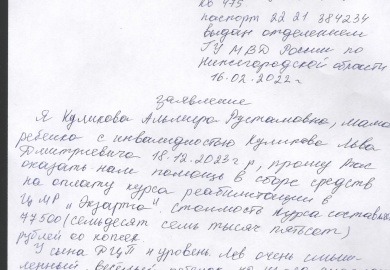 кв 475
паспорт 22 21 384234
выдан отделением
ГУ МВД России по
Нижегородской области
16.02.2022г
заявление
Я Куликова Альмира Рустамовна, мама
ребенка с инвалидностью Куликова Льва
Дмитриевича 18.12.2023г р, прошу Вас
оказать нам помощь в сборе средств
на оплату курса реабилитации в
ЦМР "Экзарта". Стоимость курса составила
77500 (семьдесят семь тысяч пятьсот)
рублей 00 копеек
У сына ДЦП уровень. Лев очень смыш-
ленный, веселый